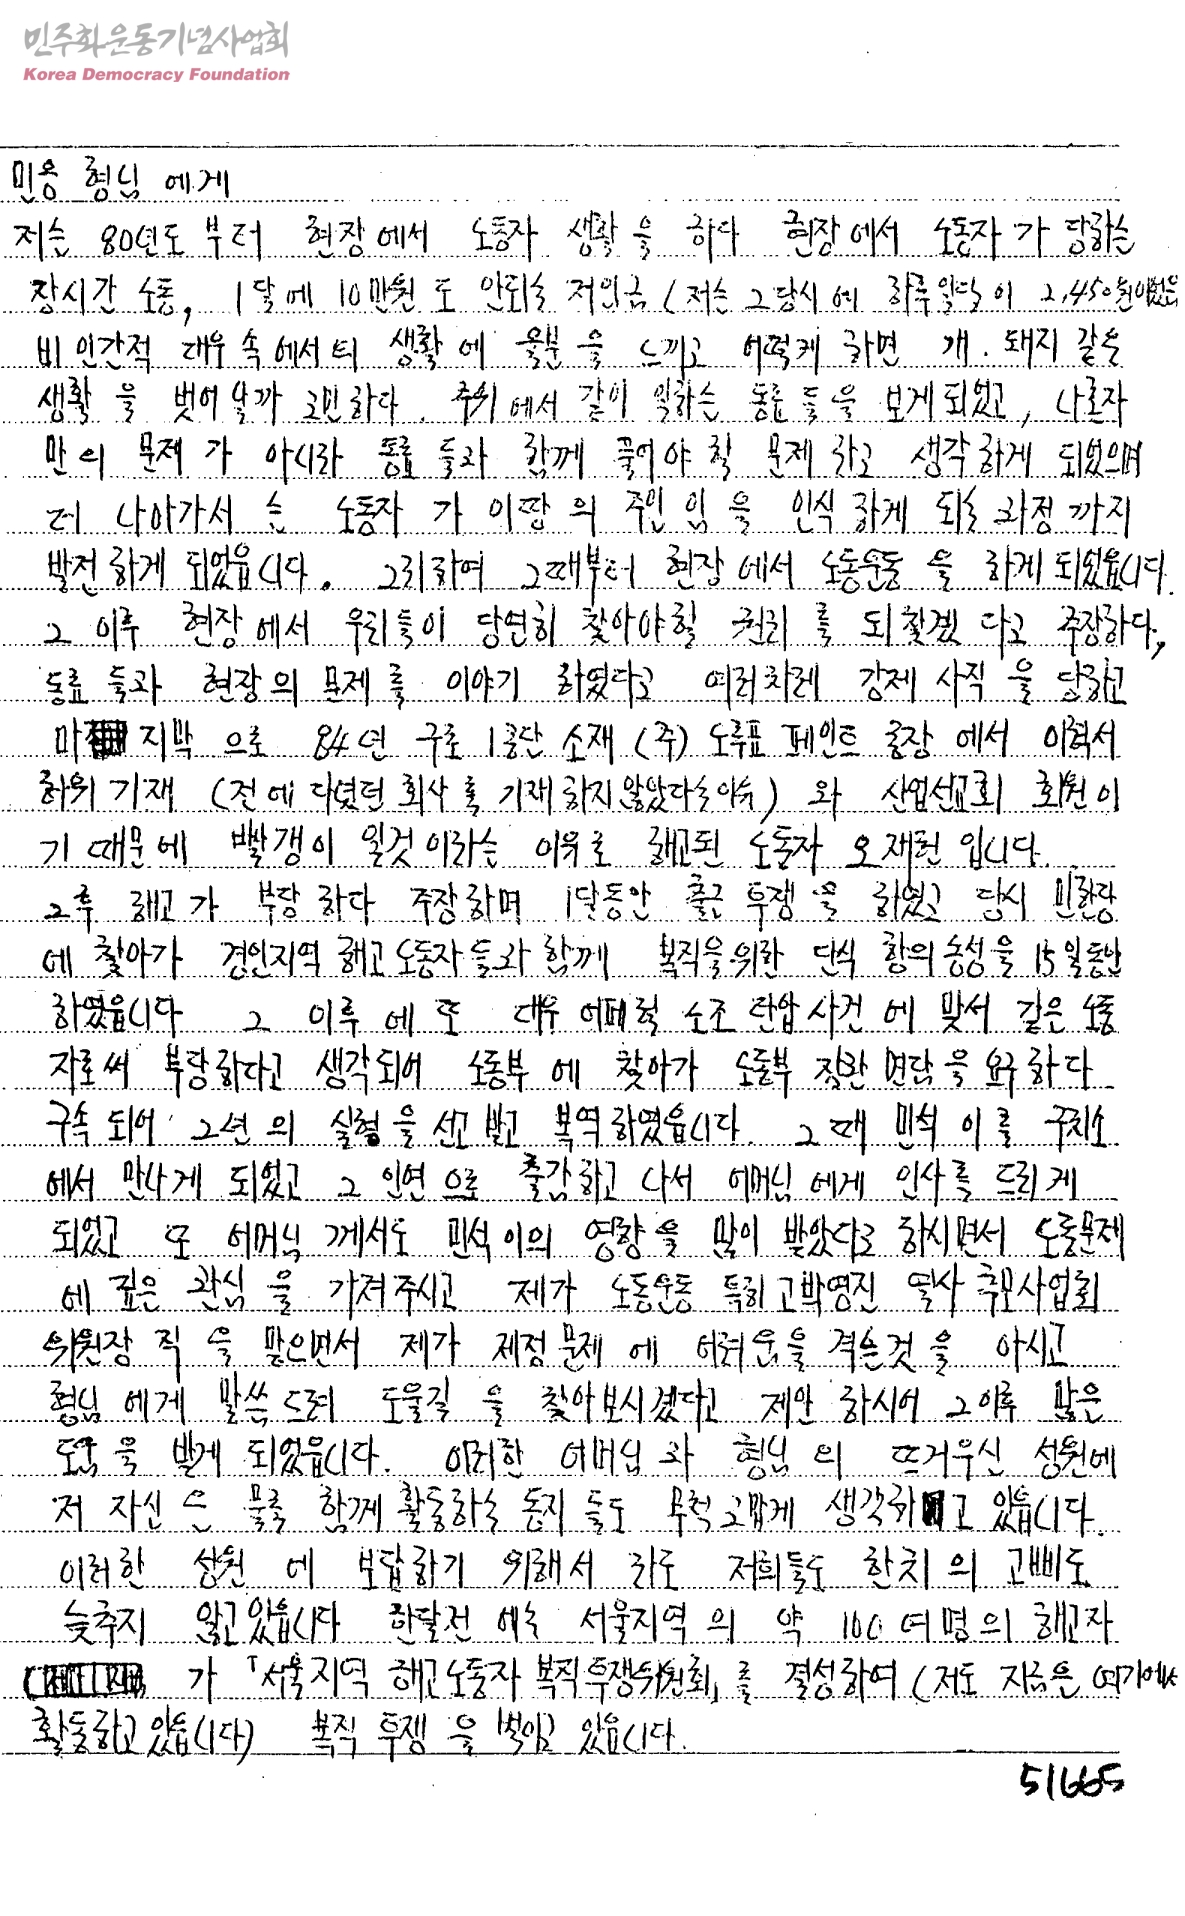 민주화운동기념사업회
Korea Democracy Foundation
민웅 형님 에게
저는 80년도 부터 현장에서 노동자 생활을 하다 현장에서 노동자가 당하는
장시간 노동, 1달에 10만원도 안되는 저임금 (저는 그당시에 하루일당이 2,450원이었음
비인간적 대우속에서 생활에 울분을 느끼고 어떻게 하면 개. 돼지 같은
생활을 벗어날까 고민하다. 주위에서 같이 일하는 동료들을 보게되었고, 나혼자
만의 문제가 아니라 동료들과 함께 풀어야 할 문제라고 생각하게 되었으며
더 나아가서는 노동자가 이땅의 주인임을 인식하게 되는 과정까지
발전하게 되었읍니다. 그리하여 그때부터 현장에서 노동운동을 하게되었읍니다.
그 이후 현장에서 우리들이 당연히 찾아야할 권리를 되찾겠다고 주장하다,
동료들과 현장의 문제를 이야기 하였다고 여러차례 강제사직을 당하고
마지막으로 84년 구로1공단 소재 (주) 노루표 페인트 공장에서 이력서
허위기재 (전에 다녔던 회사를 기재하지않았다는이유)와 산업선교회 회원이
기때문에 빨갱이 일것이라는 이유로 해고된 노동자 오재헌입니다.
그후 해고가 부당하다 주장하며 1달동안 출근투쟁을 하였고 당시 민한당
에 찾아가 경인지역 해고노동자들과 함께 복직을위한 단식 항의농성을 15일동안
하였읍니다 그 이후에 또 대우어패럴 노조탄압사건에 맞서 같은 노동
자로써 부당하다고 생각되어 노동부에 찾아가 노동부장관 면담을 요구하다
구속되어 2년의 실형을 선고받고 복역하였읍니다. 그때 민석이를 구치소
에서 만나게 되었고 그 인연으로 출감하고 나서 어머님에게 인사를 드리게
되었고 또 어머님께서도 민석이의 영향을 많이 받았다고 하시면서 노동문제
에 깊은 관심을 가져주시고 제가 노동운동 특히 고박영진 열사 추모사업회
위원장직을 맡으면서 제가 제정문제에 어려움을 격는것을 아시고
형님에게 말씀드려 도울길을 찾아보시겠다고 제안하시어 그이후 많은
도움을 받게 되었읍니다. 이러한 어머님과 형님의 뜨거우신 성원에
저 자신은 물론 함께 활동하는 동지들도 무척 고맙게 생각하고 있읍니다.
이러한 성원에 보답하기 위해서라도 저희들도 한치의 고삐도
늦추지 않고있읍니다 한달전에는 서울지역의 약 100여명의 해고자
가 「서울지역 해고노동자 복직투쟁위원회」를 결성하여 (저도 지금은 여기에서
활동하고있읍니다) 복직투쟁을 벌이고 있읍니다.
51665